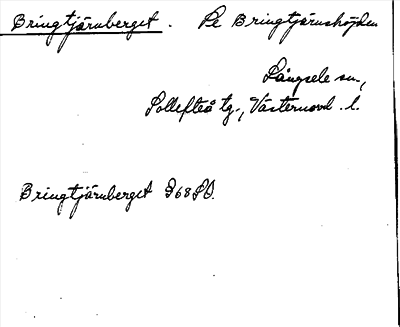 Bringtjärnberget. Se Bringtjärnshöjden
Långsele sn.,
Sollefteå tg., Västernorrl. l.
Bringtjärnberget